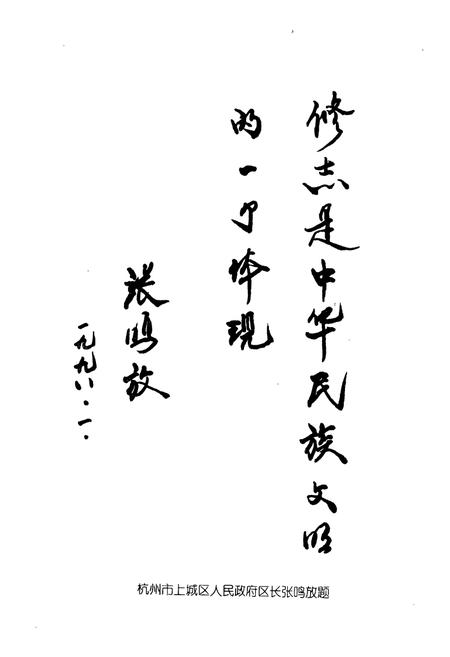 修志是中华民族文明
的一个体现
张鸣放
一九九八.一.
杭州市上城区人民政府区长张鸣放题